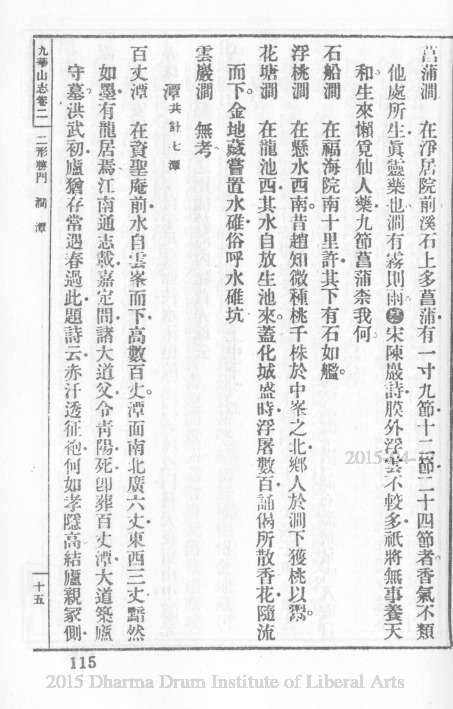 菖蒲澗　在淨居院前溪石上多菖蒲有一寸九節十二節二十四節者香氣不類
他處所生眞靈藥也澗有霧則雨宋陳巖詩膜外浮雲不較多祇將無事養天
和生來懶覓仙人藥九節菖蒲柰我何
石船澗　在福海院南十里許其下有石如艦。
浮桃澗　在懸水西南昔趙知微種桃千株於中峯之北鄉人於澗下獲桃以
花塘澗　在龍池西其水自放生池來蓋化城盛時浮屠數百誦偈所散香花隨流
而下。金地藏嘗置水碓俗呼水碓坑
雲巖澗　無考
潭共計七潭
百丈潭　在資聖庵前水自雲峯而下高數百丈潭面南北廣六丈東西三丈黯然
如墨有龍居焉江南通志載嘉定間諸大道父令青陽死卽葬百丈潭大道築廬
守墓。洪武初廬猶存常遇春過此題詩云赤汗透征袍何如孝隱高結廬親冢側
九華山志卷二　二形勝門　澗　潭　十五
115
2015-04-
2015 Dharma Drum Institute of Liberal Arts